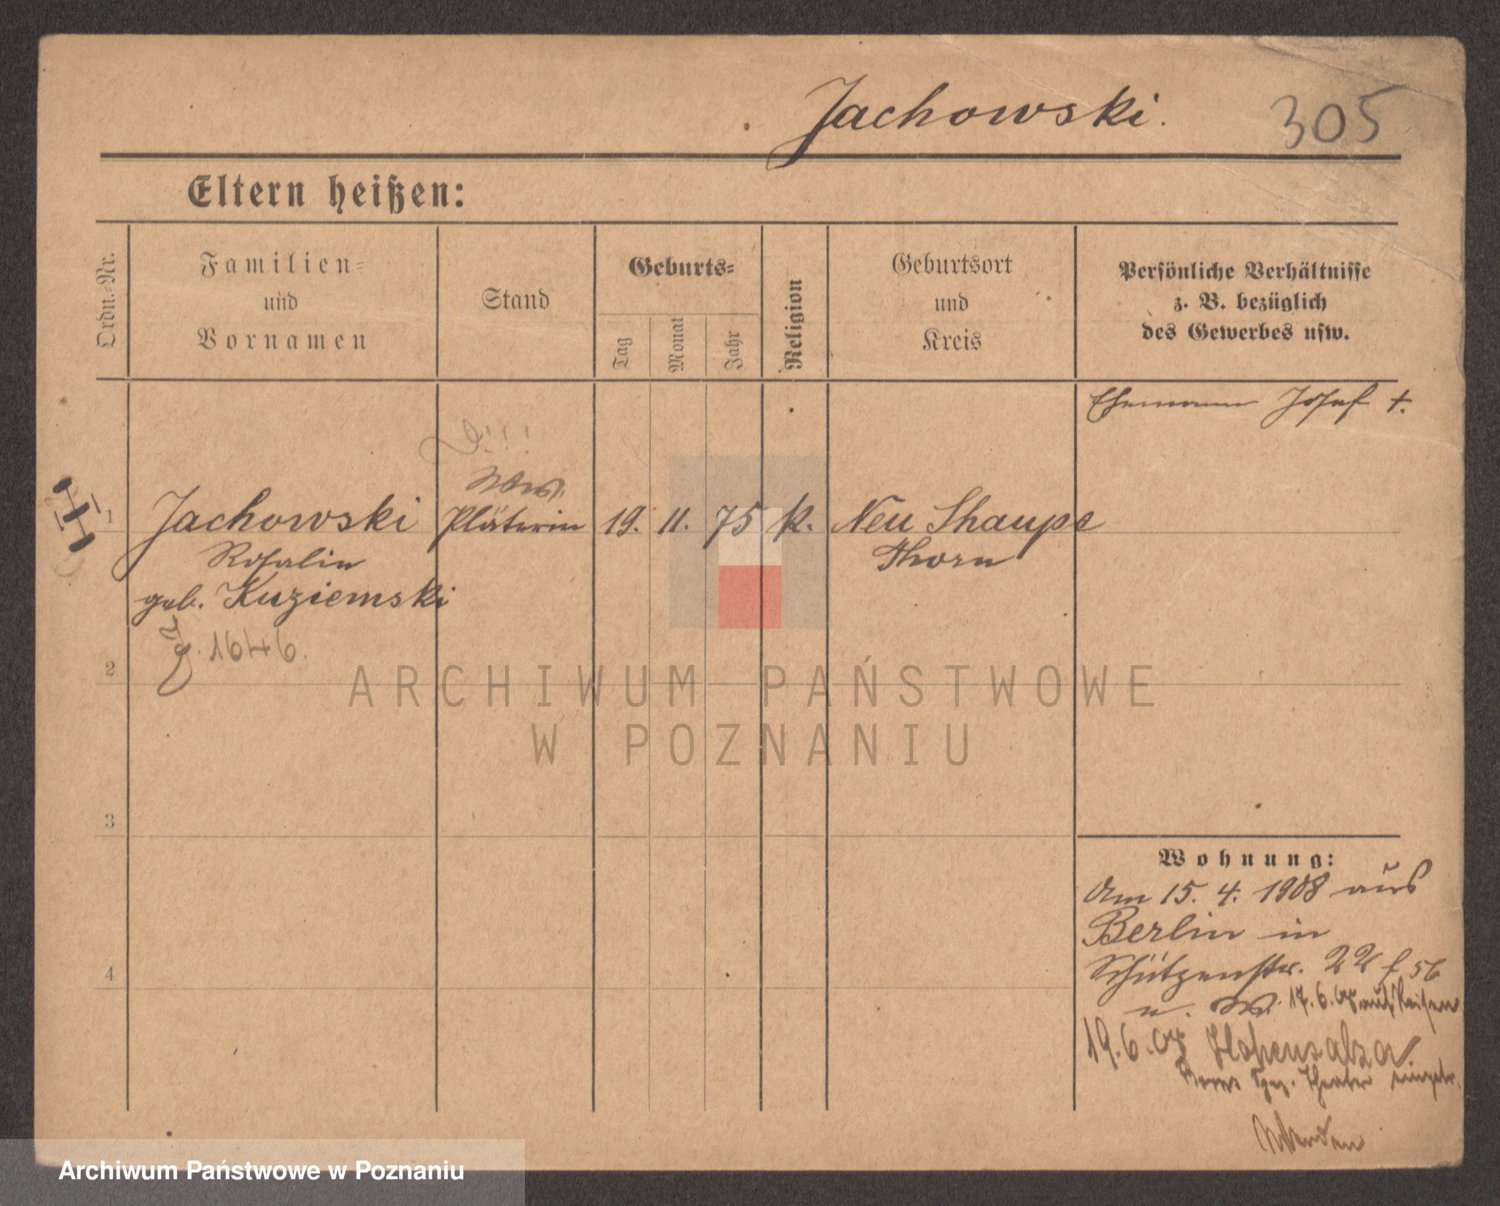 Jachowski.
305
Eltern heißen:
Ordn.-Nr.
Familien-
und
Vornamen
Stand
Geburts-
Tag
Monat
Jahr
Religion
Geburtsort
und
Kreis
Persönliche Verhältnisse
z. B. bezüglich
des Gewerbes usw.
Ehemann Josef †.
Ww.
1 Jachowski Plätterin 19. 11. 75 k. Neu Skaupe
Rosalin Thorn
geb. Kuziemski
1646.
2
3
4
Wohnung:
Am 15. 4. 1908 aus
Berlin in
Schützenstr. 22
u. W. 17.6.08 auf Reisen
19.6.08 Hohensalza
ARCHIWUM PAŃSTWOWE
W POZNANIU
Archiwum Państwowe w Poznaniu